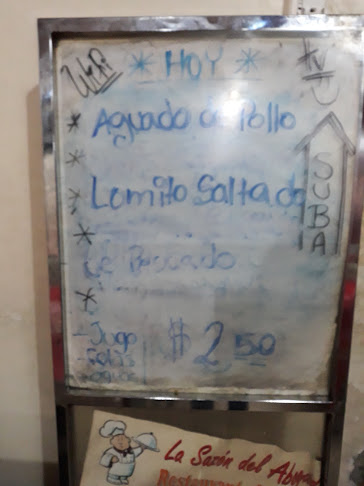 * HOY *
* Aguado de Pollo
Lomito Saltado
de Pescado
- Jugo
$ 2.50
SUBA
La Sazón del
Restaurant